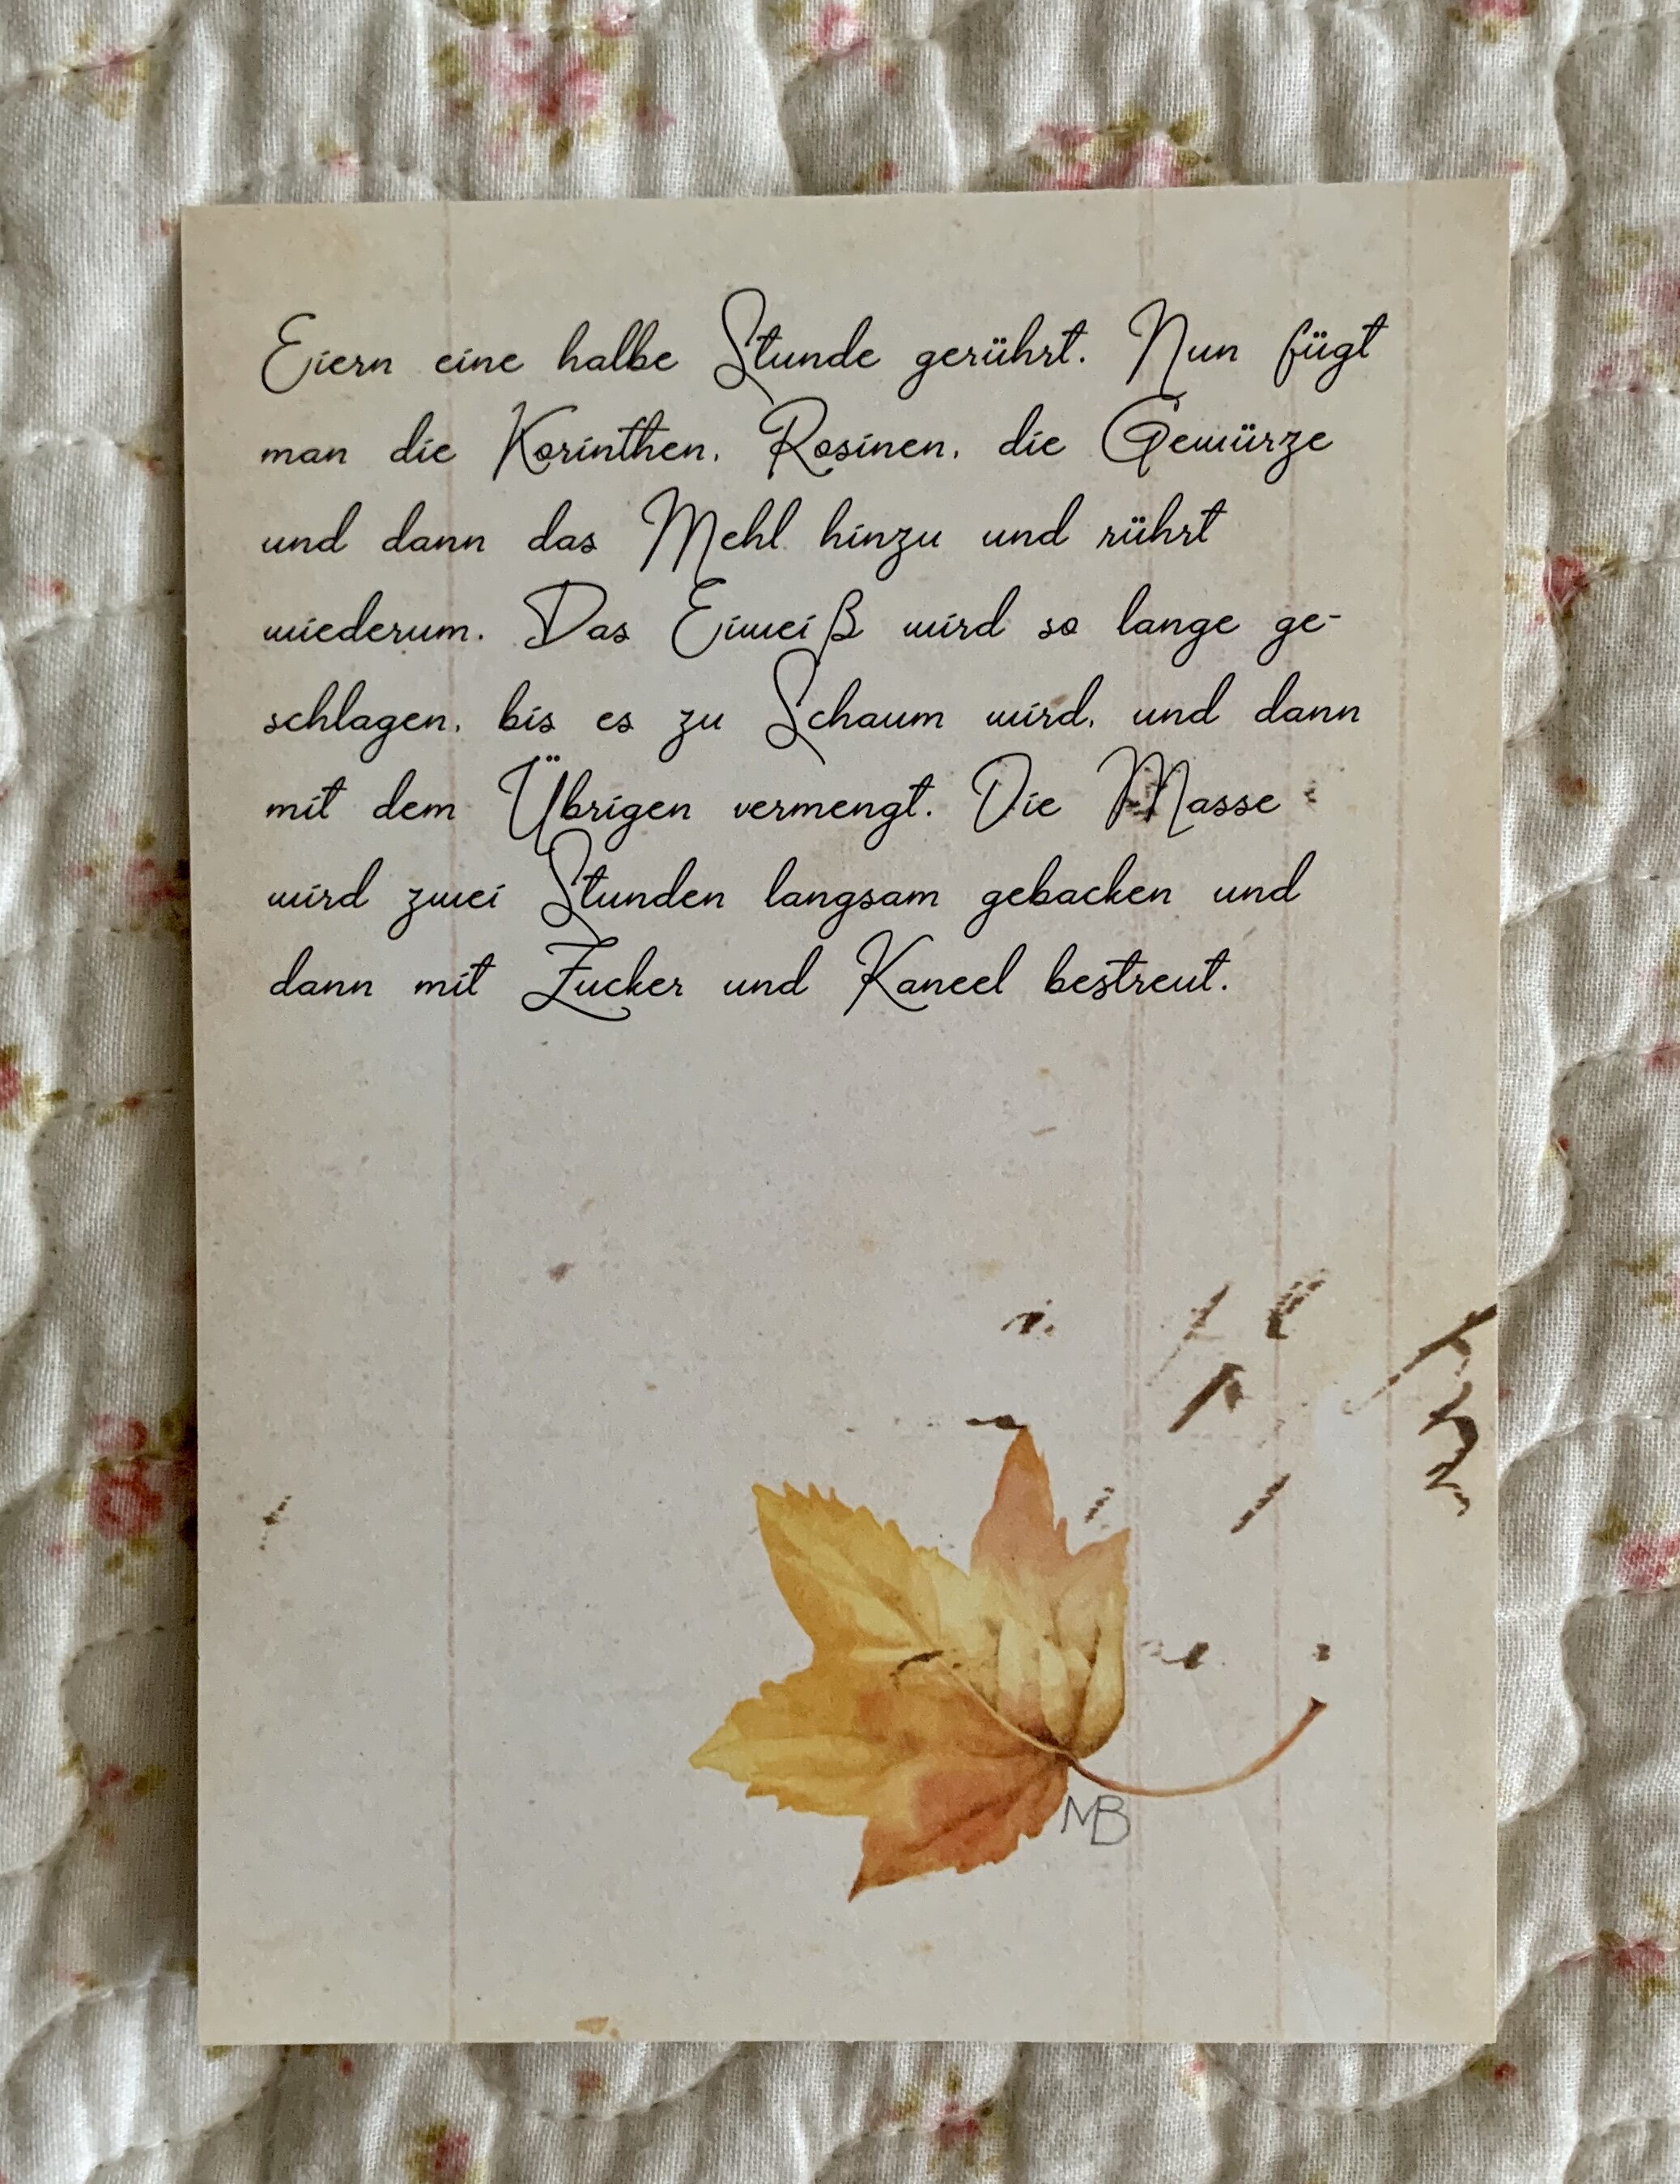 Eiern eine halbe Stunde gerührt. Nun fügt
man die Korinthen, Rosinen, die Gewürze
und dann das Mehl hinzu und rührt
wiederum. Das Eiweiß wird so lange ge-
schlagen, bis es zu Schaum wird, und dann
mit dem Übrigen vermengt. Die Masse
wird zwei Stunden langsam gebacken und
dann mit Zucker und Kaneel bestreut.
MB